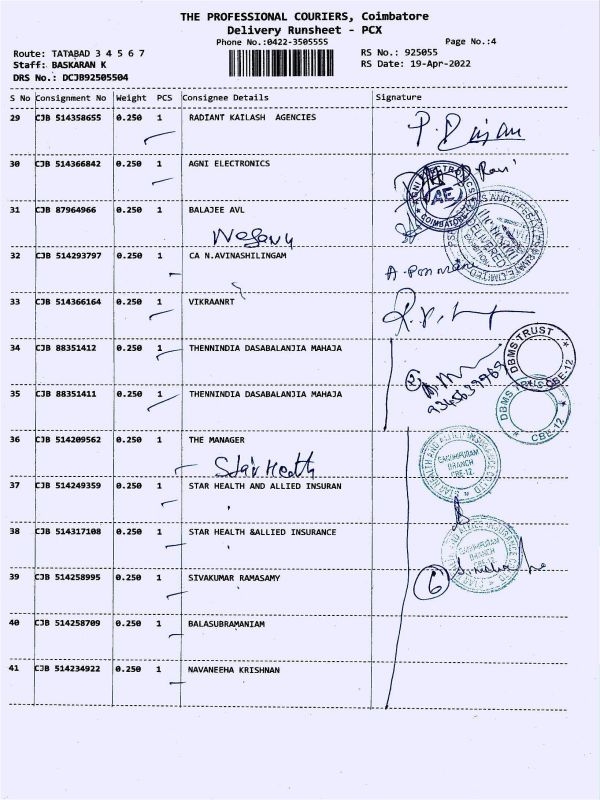 THE PROFESSIONAL COURIERS, Coimbatore
Delivery Runsheet - PCX
Phone No.:0422-3505555
Page No.:4
Route: TATABAD 3 4 5 6 7
RS No.: 925055
Staff: BASKARAN K
RS Date: 19-Apr-2022
DRS No.: DCJB92505504
S No Consignment No Weight PCS Consignee Details Signature
29 CJB 514358655 0.250 1 RADIANT KAILASH AGENCIES
30 CJB 514366842 0.250 1 AGNI ELECTRONICS
AGNI ELECTRONICS
AE
COIMBATORE
31 CJB 87964966 0.250 1 BALAJEE AVL
DELIVERED
32 CJB 514293797 0.250 1 CA N.AVINASHILINGAM
33 CJB 514366164 0.250 1 VIKRAANRT
34 CJB 88351412 0.250 1 THENNINDIA DASABALANJIA MAHAJA
DBMS TRUST
CBE-12
35 CJB 88351411 0.250 1 THENNINDIA DASABALANJIA MAHAJA
DBMS TRUST
CBE-12
36 CJB 514209562 0.250 1 THE MANAGER
Star Health
STAR HEALTH AND ALLIED INSURANCE CO LTD
BRANCH
CBE-12
37 CJB 514249359 0.250 1 STAR HEALTH AND ALLIED INSURAN
38 CJB 514317108 0.250 1 STAR HEALTH &ALLIED INSURANCE
BRANCH
CBE-12
39 CJB 514258995 0.250 1 SIVAKUMAR RAMASAMY
6
40 CJB 514258709 0.250 1 BALASUBRAMANIAM
41 CJB 514234922 0.250 1 NAVANEEHA KRISHNAN